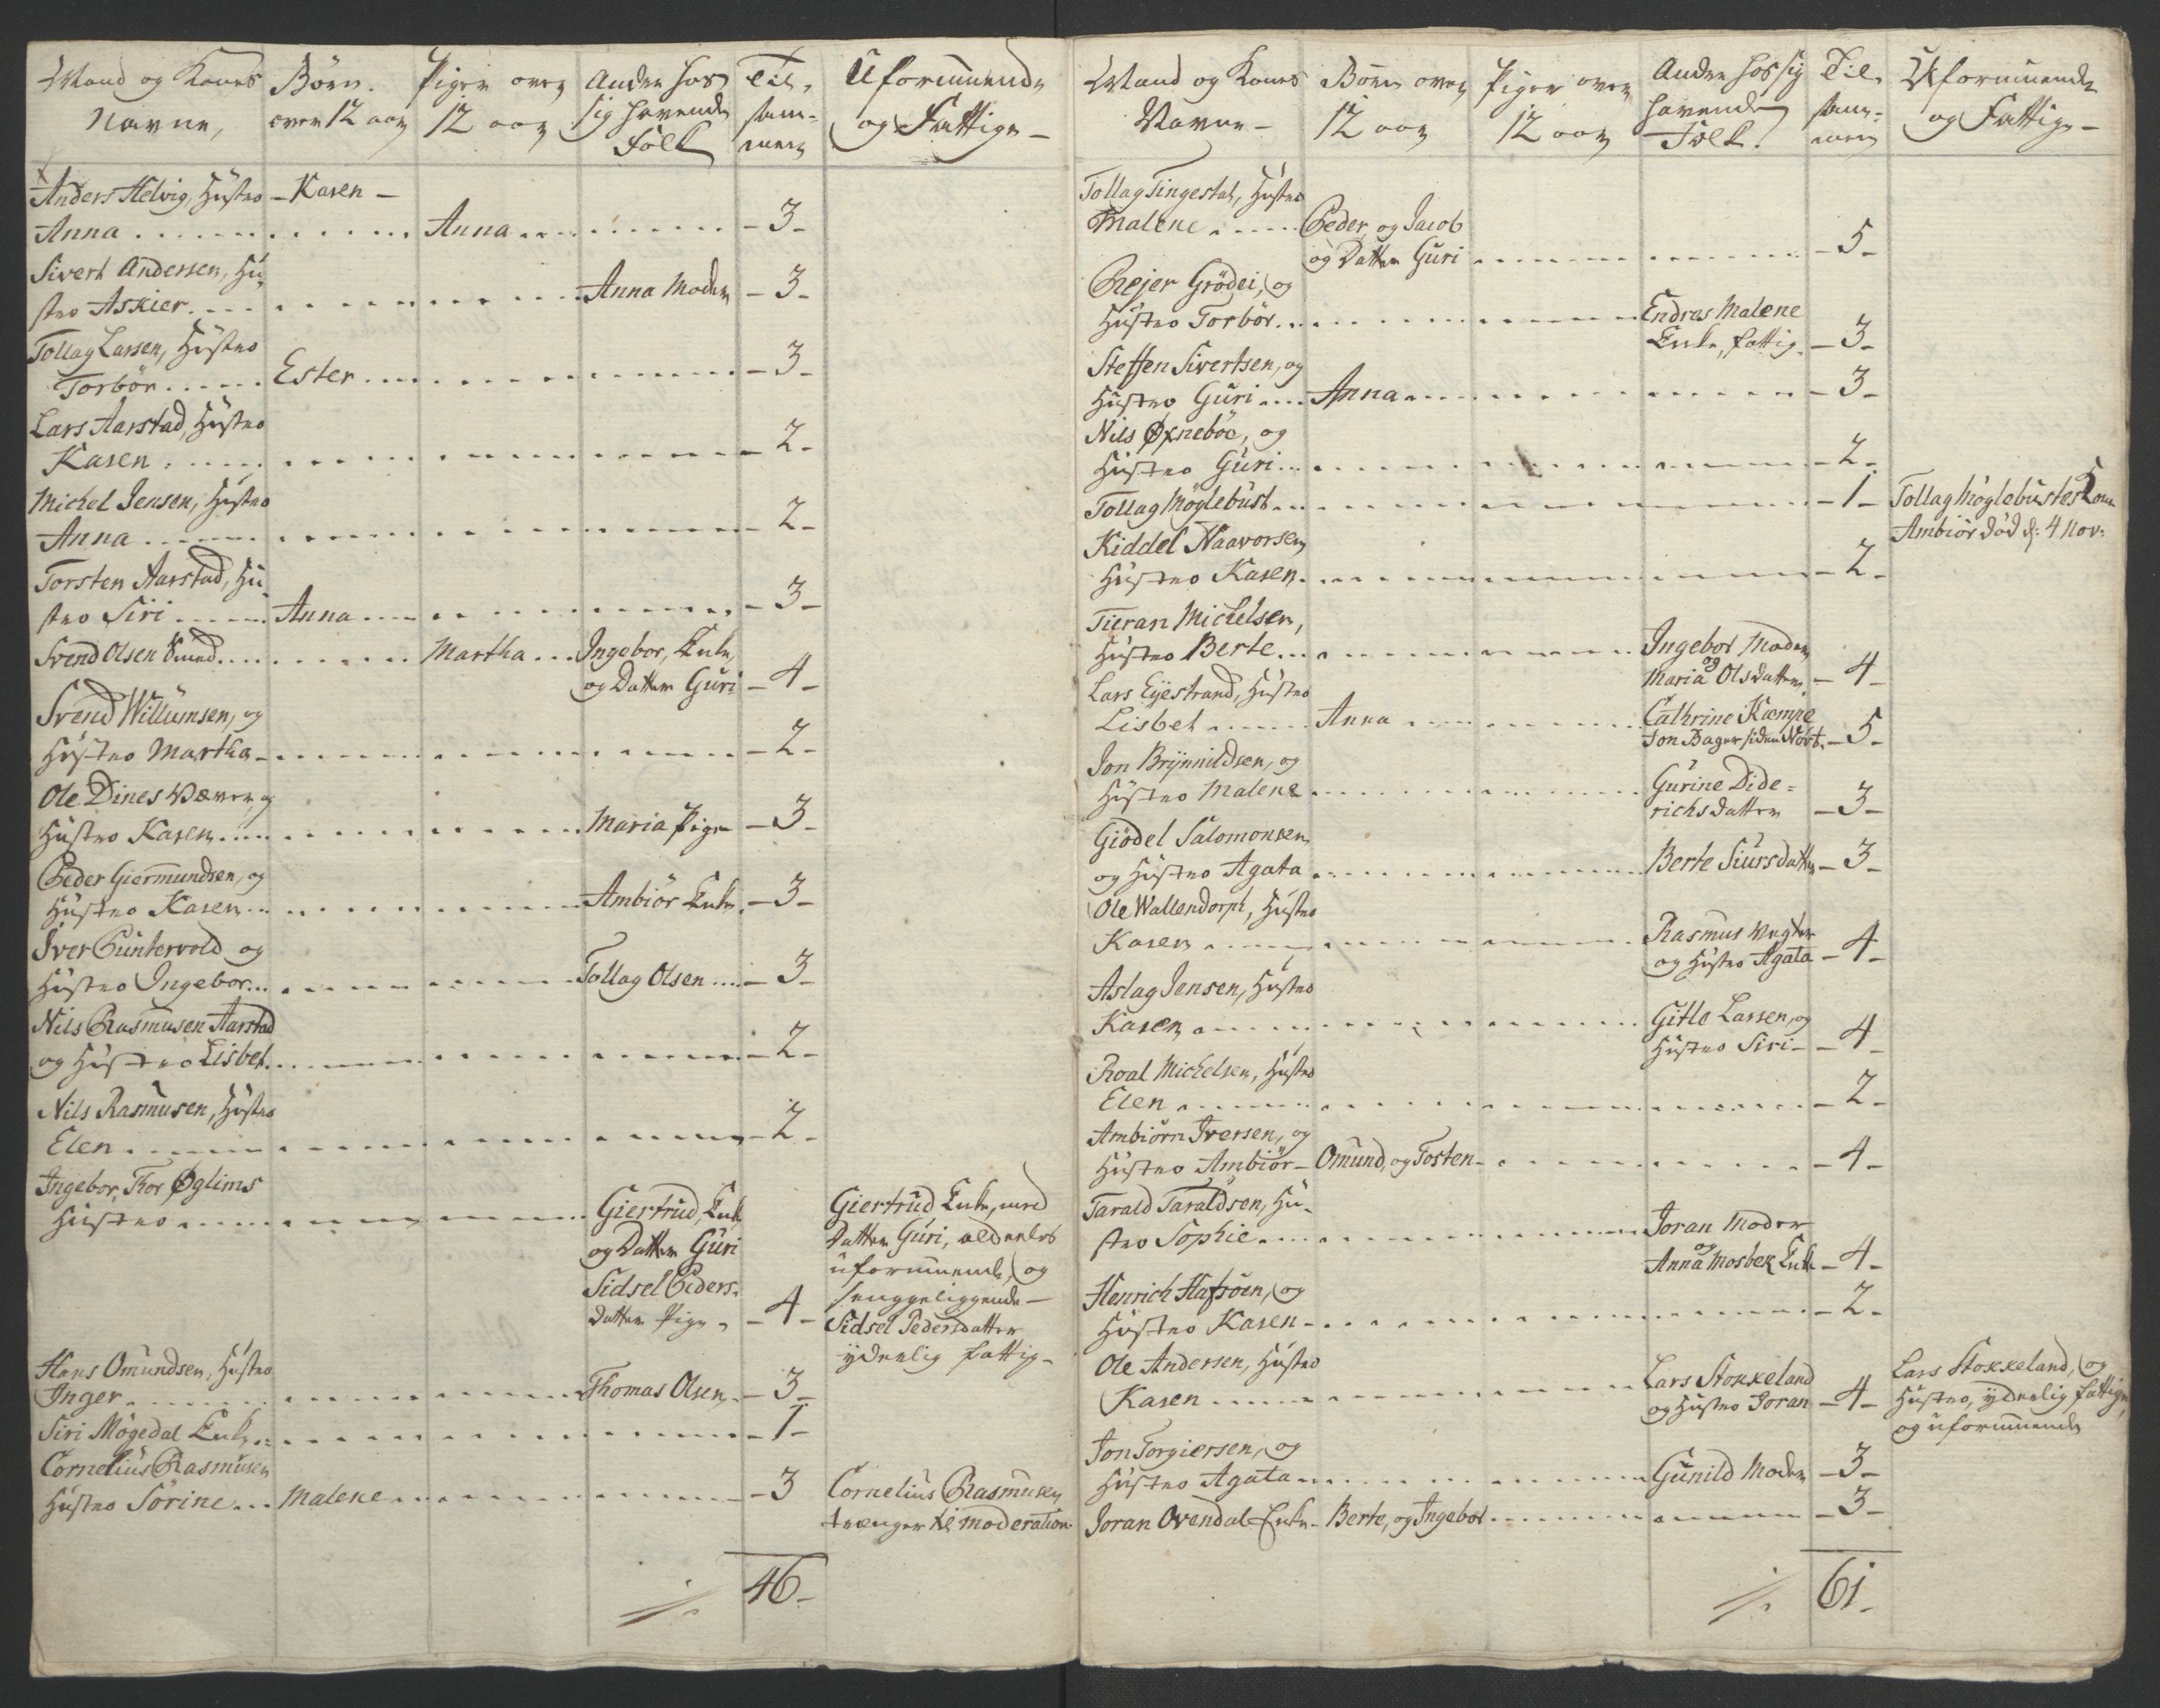 Mand og Kones Börn. Piger over Andre hos Til- Uformuende
Navne, over 12 aar 12 aar sig havende sam- og Fattige -
Folk men
Anders Helvig, Hustro - Karen -
Anna Anna - 3 -
Sivert Andersen, Hu-
stro Askier. Anna Moder - 3 -
Tollag Larsen, Hustro
Torbör Ester - 3 -
Lars Aarstad, Hustro
Karen - 2 -
Michel Jensen, Hustro
Anna - 2 -
Torsten Aarstad, Hu-
stro Siri Anna - 3 -
Svend Olsen Smed Martha Ingebor, Enke,
og Datter Guri - 4 -
Svend Willumsen, og
Hustro Martha - 2 -
Ole Dines Væver, og
Hustro Karen Maria Pige - 3 -
Peder Giermundsen, og
Hustro Karen Ambiör Enke - 3 -
Iver Puntervold og
Hustro Ingebor Tollag Olsen - 3 -
Nils Rasmusen Aarstad
og Hustro Lisbet - 2 -
Nils Rasmusen, Hustro
Elen - 2 -
Ingebor, Thor Øglims
Hustro Giertrud, Enke, Giertrud Enke, med
og Datter Guri Datter Guri, aldeeles
uformuende, og
Sidsel Peders- senggeliggende -
Datter Pige - 4 - Sidsel Pedersdatter
yderlig fattig -
Hans Omundsen, Hustro
Inger Thomas Olsen - 3 -
Siri Mögedal Enke - 1 -
Cornelius Rasmusen
Hustro Sörine Malene - 3 Cornelius Rasmusen
trænger til moderation.
46 -
Mand og Kones Börn over Piger over Andre hos sig Til- Uformuende
Navne - 12 aar 12 aar havende sam- og Fattige -
Folk. men
Tollag Tingestal, Hustro
Malene Peder, og Jacob
og Datter Guri - 5 -
Rejer Grödei, og
Hustro Torbör Endres Malene
Enke, fattig - 3 -
Steffen Sivertsen, og
Hustro Guri Anna - 3 -
Nils Øxneböe, og
Hustro Guri - 2 -
Tollag Möglebust - 1 - Tollag Möglebustes Kone
Ambiör död d: 4 Nov:
Kiddel Naavorsen
Hustro Karen - 2 -
Tieran Michelsen,
Hustro Berte Ingebor Moder
og
Maria Olsdatter - 4 -
Lars Eyestrand, Hustro
Lisbet Anna Cathrine Kæmpe
Jon Bager siden Novb. - 5 -
Jon Brynnildsen, og
Hustro Malene Gurine Dide-
richsdatter - 3 -
Giödel Salomonsen
og Hustro Agata Berte Siursdatter - 3 -
Ole Wallendorph, Hustro
Karen Rasmus Vegter
og Hustro Agata - 4 -
Aslag Jensen, Hustro
Karen Gitle Larsen, og
Hustro Siri - 4 -
Roal Michelsen, Hustro
Elen - 2 -
Ambiörn Iversen, og
Hustro Ambiör - Omund, og Tosten - 4 -
Tarald Taraldsen, Hu-
stro Sophie Joran Moder
og
Anna Mosbek Enke - 4 -
Henrich Hafsöen, og
Hustro Karen - 2 -
Ole Andersen, Hustro
Karen Lars Stokkeland Lars Stokkeland, og
og Hustro Joran - 4 - Hustro, yderlig fattige,
og uformuende
Jon Torgiersen, og
Hustro Agata Gunild Moder - 3 -
Joran Ovendal Enke - Berte, og Ingebor - 3 -
61 -